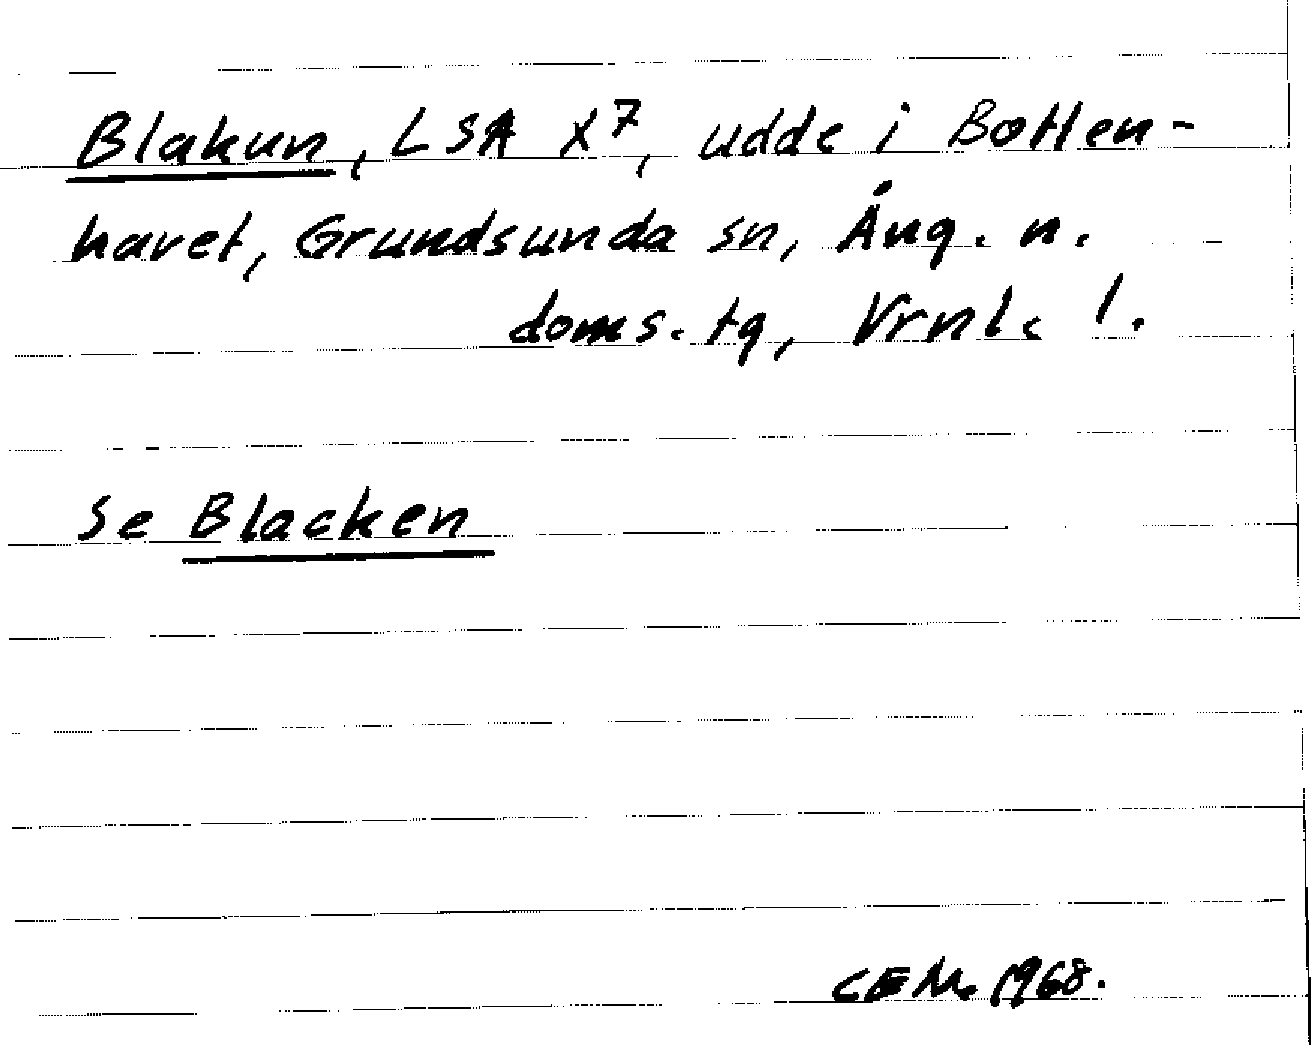 Blakun, LSA X7, udde i Botten-
havet, Grundsunda sn, Ång. n.
doms. tg, Vrnl. !.
Se Blacken
CEM. 1968.